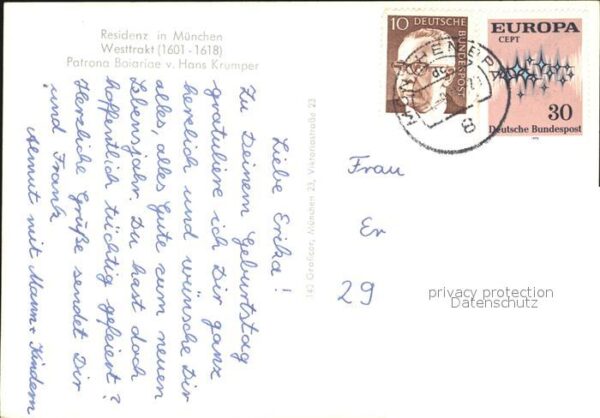 Residenz in München
Westtrakt (1601 - 1618)
Patrona Boiariae v. Hans Krumper
Liebe Erika!
Zu Deinem Geburtstag
gratuliere ich Dir ganz
herzlich und wünsche Dir
alles, alles Gute zum neuen
Lebensjahr. Du hast doch
hoffentlich tüchtig gefeiert?
Herzliche Grüße sendet Dir
und Frank
Almut mit Mann + Kindern
München 23, Viktoriastraße 23
10 DEUTSCHE
BUNDESPOST
EUROPA
CEPT
30
Deutsche Bundespost
MÜNCHEN
8
Frau
Er
29
privacy protection
Datenschutz